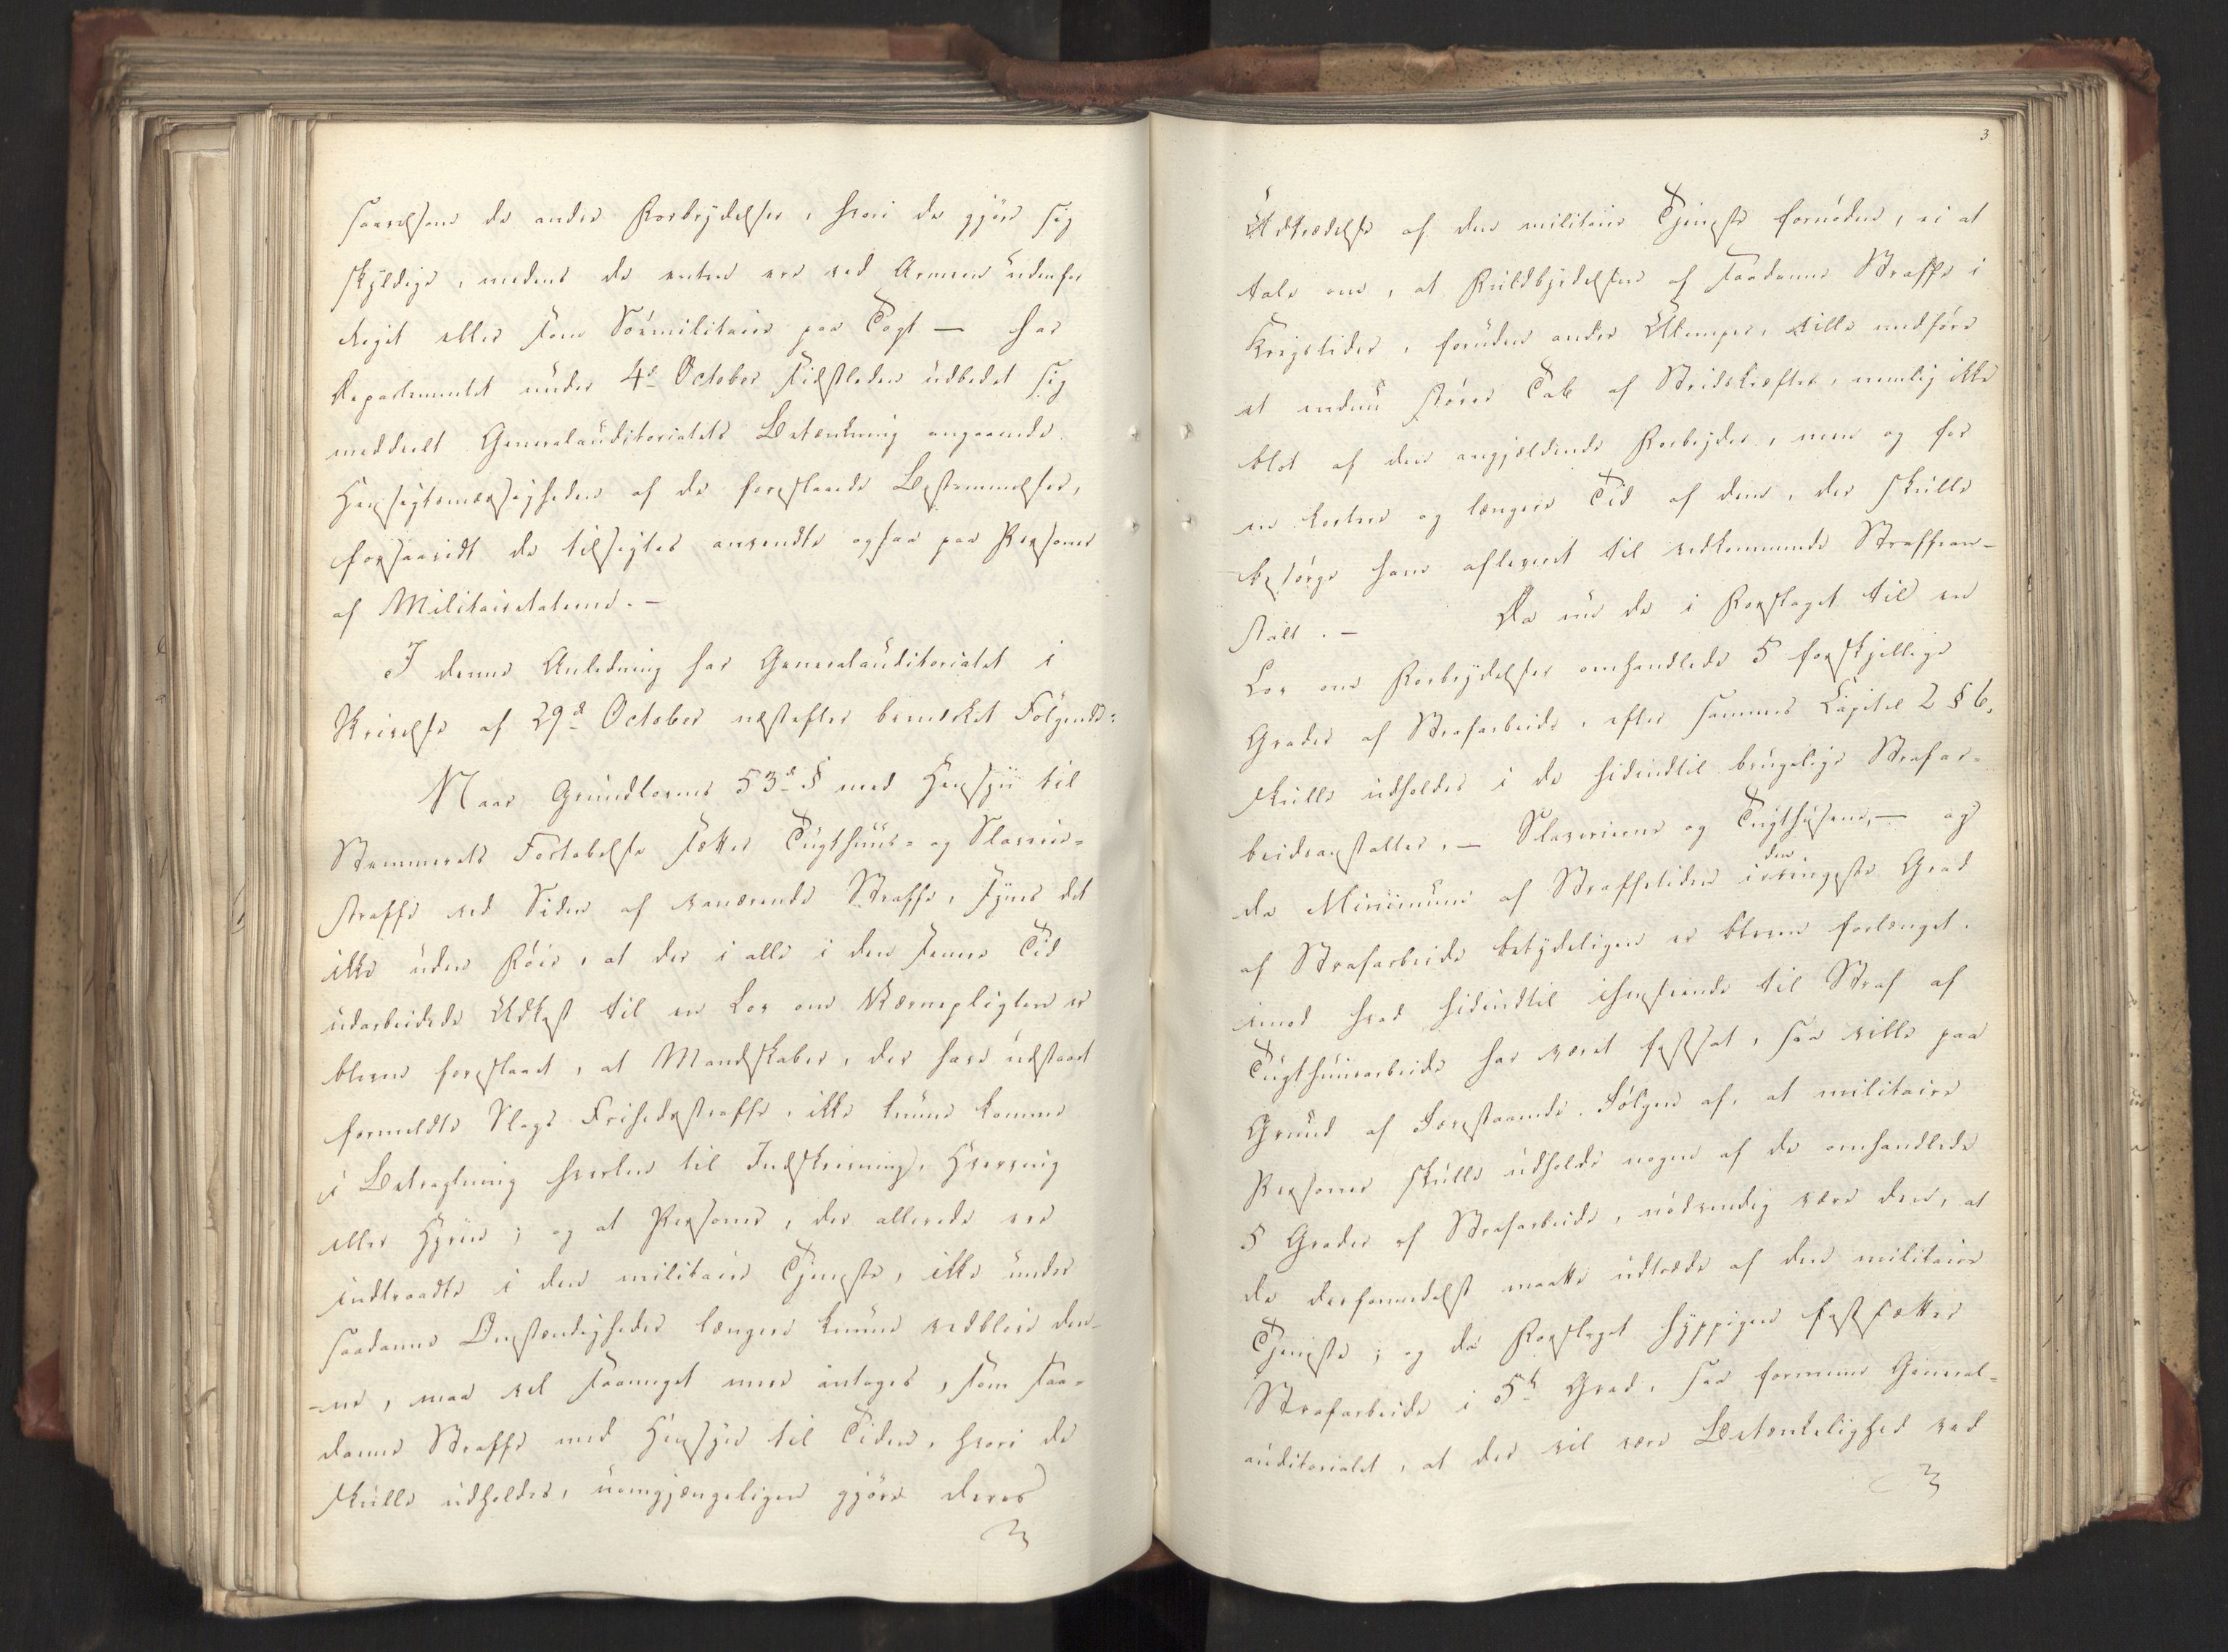 saavelsom de andre Forbrydelser, hvori de gjöre sig
skyldige, medens de enten ere ved Armeen udenfor
Riget eller som Sömilitaire paa Togt — har
Departementet under 4de October sidstleden udbedet sig
meddeelt Generalauditoriatets Betænkning angaaende
Hensigtsmæssigheden af de foreslaaede Bestemmelser,
forsaavidt de tilsigtes anvendte ogsaa paa Personer
af Militairetaterne. —
I denne Anledning har Generalauditoriatet i
Skrivelse af 29de October næstefter bemærket Fölgende:
Naar Grundlovens 53de § med Hensyn til
Stemmerets Fortabelse sætter Tugthuus- og Slaverie-
straffe ved Siden af vanærende Straffe, synes det
ikke uden Föie, at der i alle i den senere Tid
udarbeidede Udkast til en Lov om Værnepligten er
bleven foreslaaet, at Mandskaber, der have udstaaet
formeldte Slags Frihedsstraffe, ikke kunne komme
i Betragtning hverken til Indskrivning, Hverving
eller Hyren; og at Personer, der allerede ere
indtraadte i den militaire Tjeneste, ikke under
saadanne Omstændigheder længere kunne vedblive den-
-ne, maa vel saameget mere antages, som saa-
danne Straffe med Hensyn til Tiden, hvori de
skulle udholdes, uomgjængeligen gjöre deres
3
Udtrædelse af den militaire Tjeneste fornöden, ei at
tale om, at Fuldbyrdelsen af saadanne Straffe i
Krigstider, foruden andre Ulemper, vilde medföre
et endnu större Tab af Stridskræfter, nemlig ikke
blot af den angjældende Forbryder, men og for
en kortere og længere Tid af dem, der skulle
besörge ham afleveret til vedkommende Straffean-
stalt. — Da nu de i Forslaget til en
Lov om Forbrydelser omhandlede 5 forskjellige
Grader af Strafarbeide, efter sammes Capitel 2 § 6,
skulle udholdes i de hidindtil brugelige Strafar-
beidsanstalter, — Slaverierne og Tugthusene, — og
da Minimum af Straffetiden i den ringeste Grad
af Strafarbeide betydeligen er bleven forlænget.
imod hvad hidindtil ihenseende til Straf af
Tugthuusarbeide har været fastsat, saa vilde paa
Grund af Foranstaaende. Fölgen af, at militaire
Personer skulle udholde nogen af de omhandlede
5 Grader af Strafarbeide, nödvendig være den, at
de derformedelst maatte udtræde af den militaire
Tjeneste; og da Forslaget hyppigen fastsætter
Strafarbeide i 5te Grad, saa formener General-
auditoriatet, at der vil være Betænkelighed ved